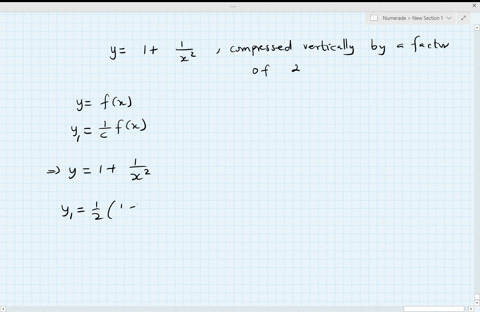 Numerade > New Section 1
y = 1 + 1/x² , compressed vertically by a factor
of 2
y = f(x)
y₁ = 1/c f(x)
⇒ y = 1 + 1/x²
y₁ = 1/2 ( 1 -